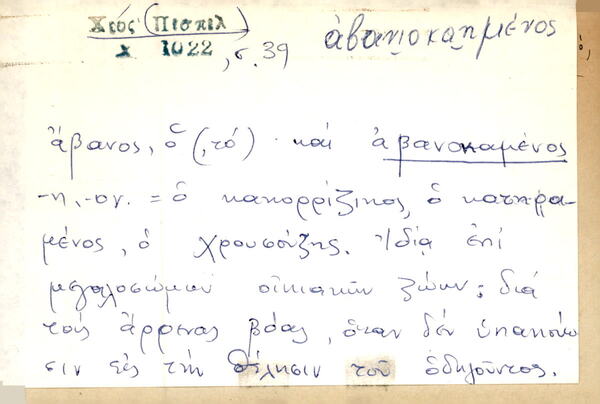 Χίος (Πισπιλ
χ 1022, σ. 39
ἀβανιοκαημένος
ἄβανος, ὁ (, τό) · καί ἀβανοκαμένος
-η, -ον. = ὁ κακορρίζικος, ὁ κατηρα-
μένος, ὁ χρουσούζης. Ἰδίᾳ ἐπί
μεγαλοσώμων οἰκιακῶν ζώων ; διά
τούς ἄρρενας βόας, ὅταν δέν ὑπακούω
σιν εἰς τήν θέλησιν τοῦ ὁδηγοῦντος.